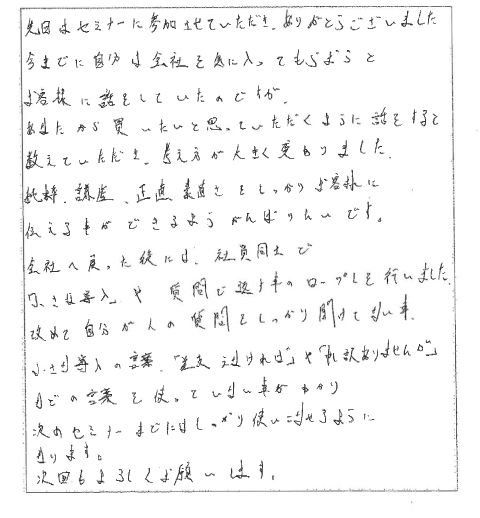 先日はセミナーに参加させていただき、ありがとうございました
今までに自分は会社を気に入ってもらおうと
お客様に話をしていたのですが、
あなたから買いたいと思っていただくように話をすると
教えていただき、考え方が大きく変わりました。
純粋、謙虚、正直、素直さをしっかりお客様に
伝える事ができるようがんばりたいです。
会社へ戻った後には、社員同士で
「小さな導入」や質問で返す事のロープレを行いました。
改めて自分が人の質問をしっかり聞けてない事、
小さな導入の言葉、「差支えなければ」や「申し訳ありませんが」
などの言葉を使っていない事がわかり
次のセミナーまでにはしっかり使いこなせるように
なります。
次回もよろしくお願いします。